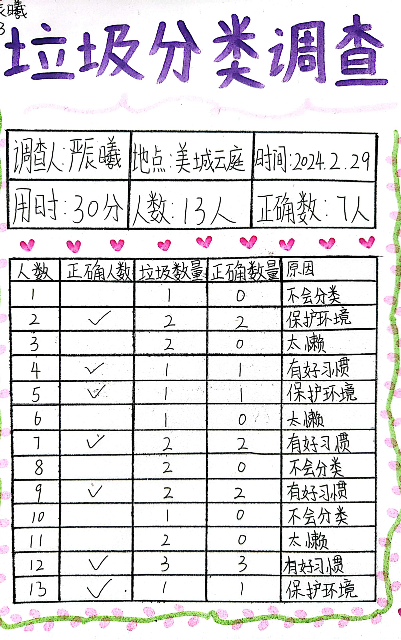 辰曦
3
垃圾分类调查
调查人:严辰曦 地点:美城云庭 时间:2024.2.29
用时:30分 人数:13人 正确数:7人
人数 正确人数 垃圾数量 正确数量 原因
1 1 0 不会分类
2 ✓ 2 2 保护环境
3 2 0 太懒
4 ✓ 1 1 有好习惯
5 ✓ 1 1 保护环境
6 1 0 太懒
7 ✓ 2 2 有好习惯
8 2 0 不会分类
9 ✓ 2 2 有好习惯
10 1 0 不会分类
11 2 0 太懒
12 ✓ 3 3 有好习惯
13 ✓ 1 1 保护环境